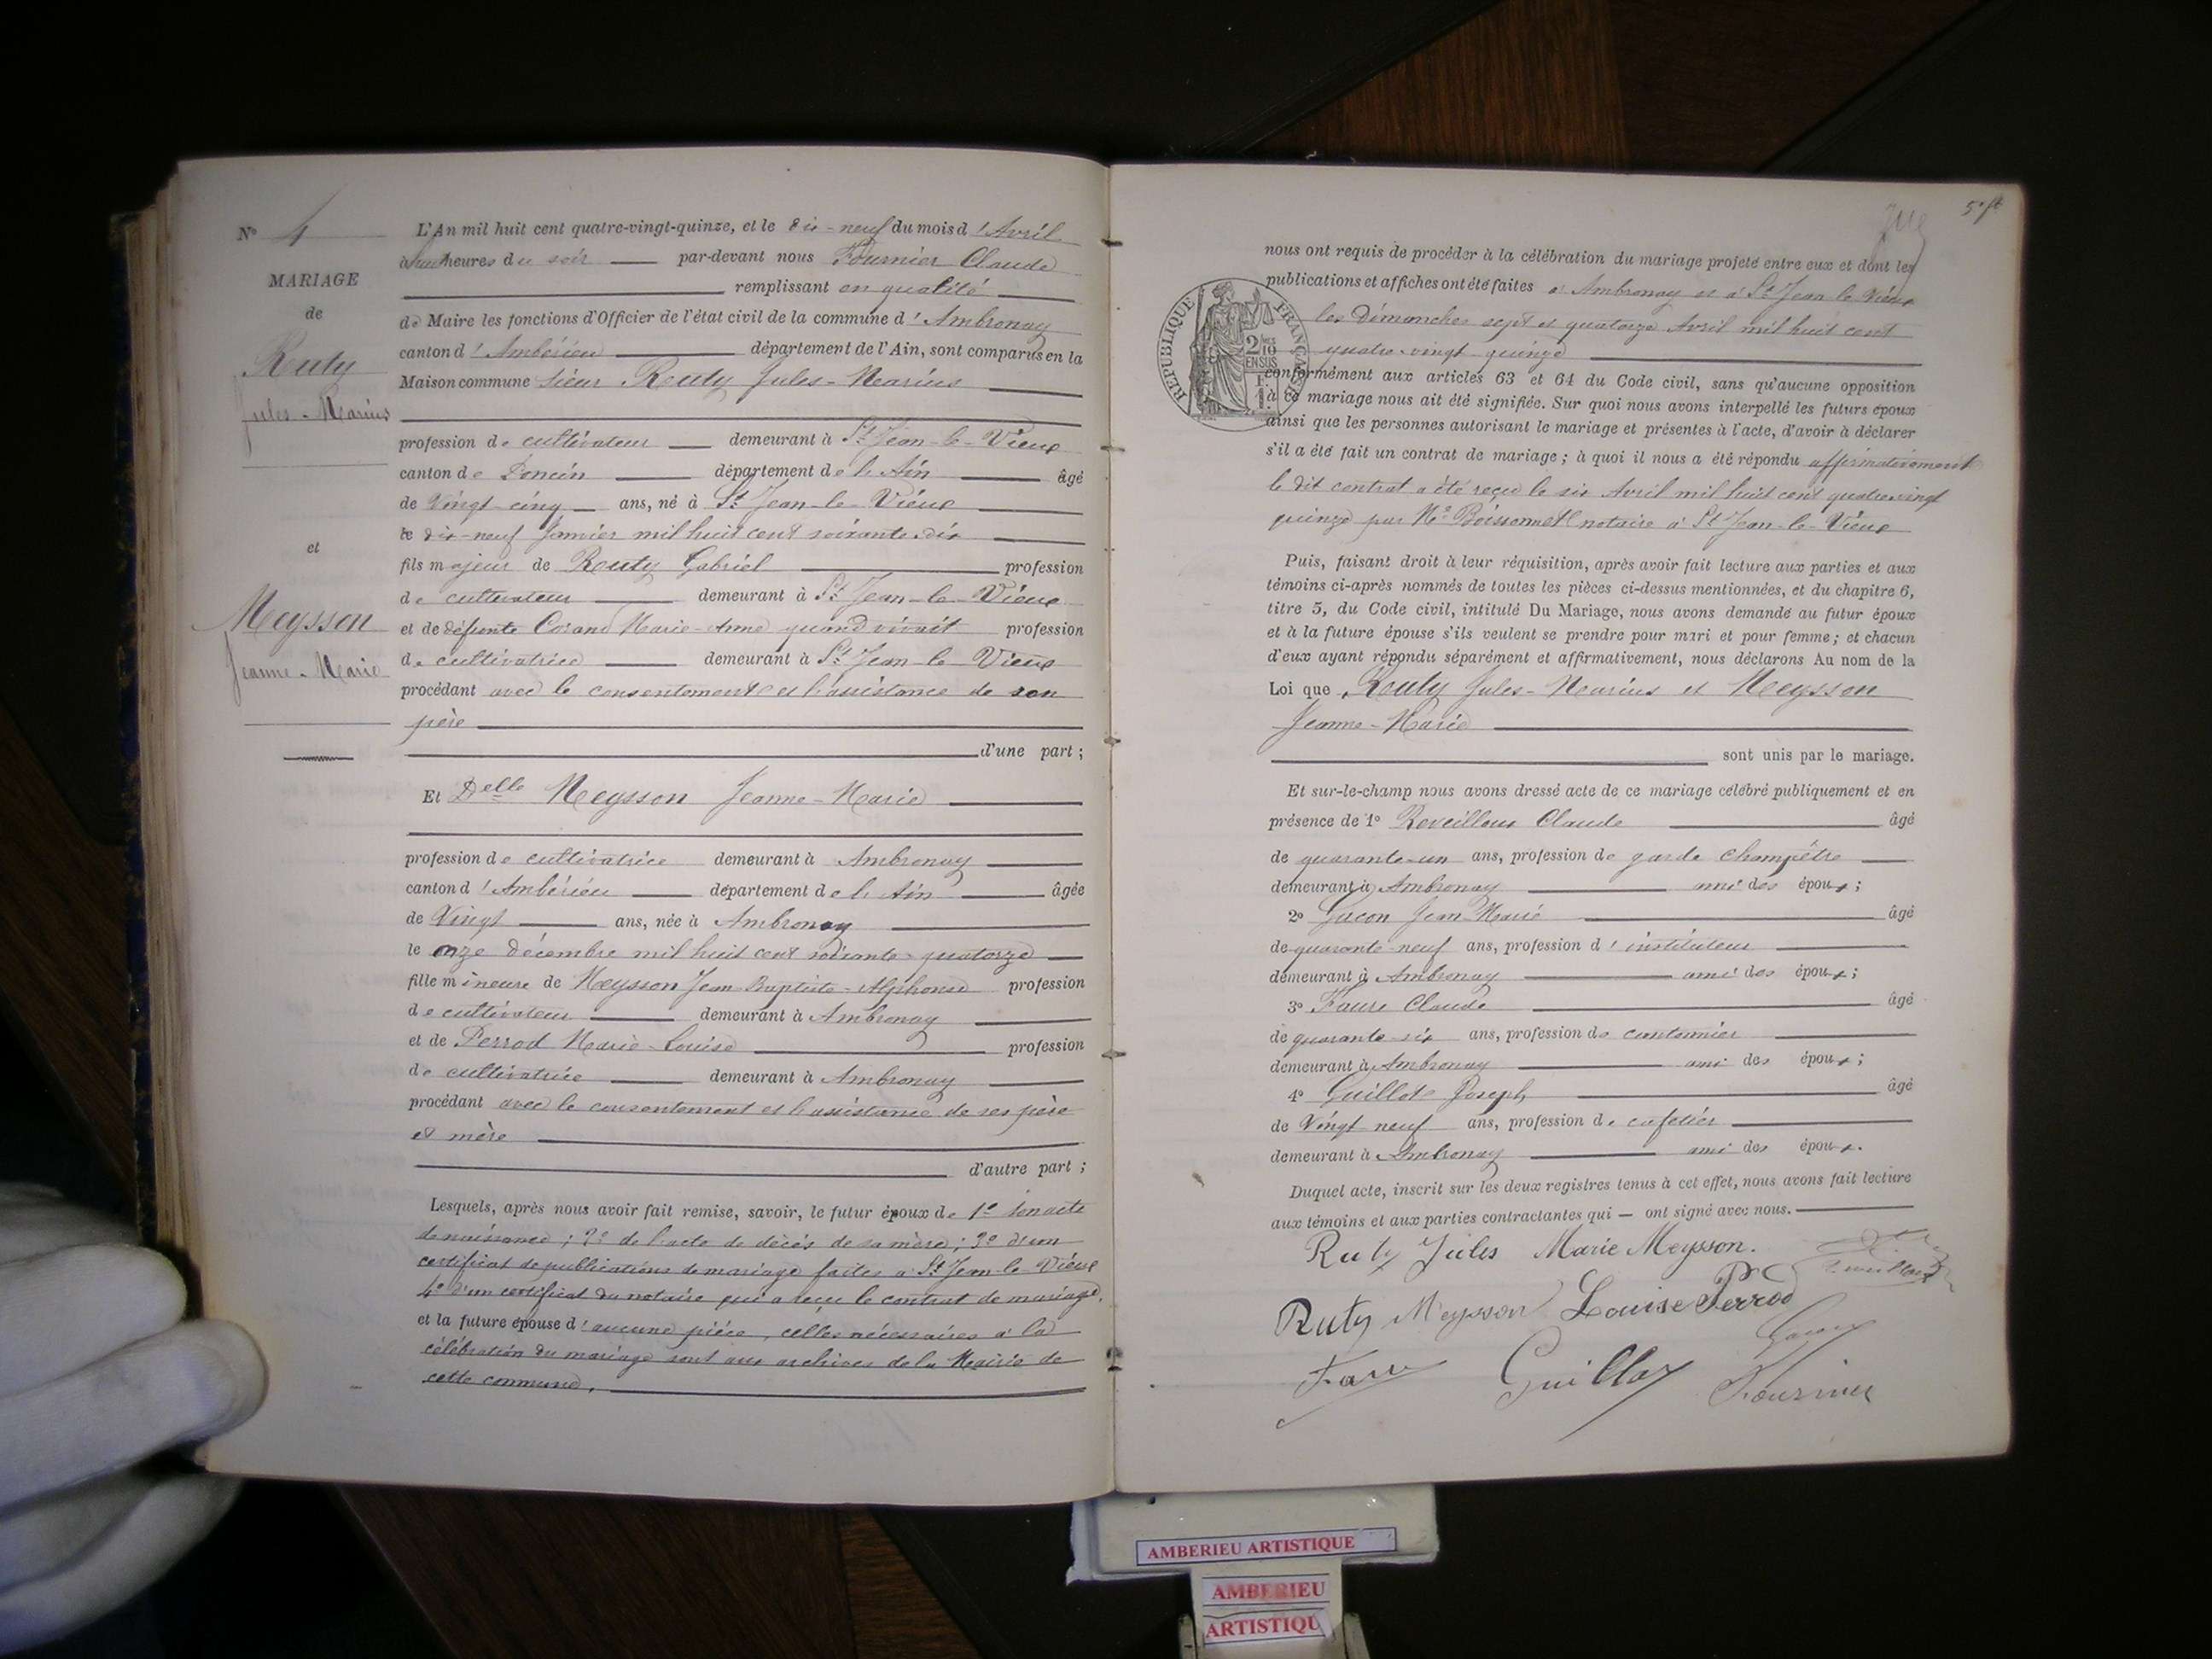 N° 4
MARIAGE
de
Ruty
Jules-Marius
et
Meysson
Jeanne-Marie
L'An mil huit cent quatre-vingt-quinze, et le dix-neuf du mois d'Avril
à heures du soir par-devant nous Fournier Claude
remplissant en qualité
de Maire les fonctions d'Officier de l'état civil de la commune d'Ambronay
canton d'Ambérieu département de l'Ain, sont comparus en la
Maison commune Sieur Reuty Jules-Marius
profession de cultivateur demeurant à St Jean-le-Vieux
canton de Poncin département de l'Ain âgé
de Vingt-cinq ans, né à St Jean-le-Vieux
le dix-neuf Janvier mil huit cent soixante-dix
fils majeur de Reuty Gabriel profession
de cultivateur demeurant à St Jean-le-Vieux
et de défunte Marie-Anne quand vivait profession
de cultivatrice demeurant à St Jean-le-Vieux
procédant avec le consentement et l'assistance de son
père
d'une part ;
Et Delle Meysson Jeanne-Marie
profession de cultivatrice demeurant à Ambronay
canton d'Ambérieu département de l'Ain âgée
de Vingt ans, née à Ambronay
le onze décembre mil huit cent soixante-quatorze
fille mineure de Meysson Jean-Baptiste-Alphonse profession
de cultivateur demeurant à Ambronay
et de Perrod Marie-Louise profession
de cultivatrice demeurant à Ambronay
procédant avec le consentement et l'assistance de ses père
et mère
d'autre part ;
Lesquels, après nous avoir fait remise, savoir, le futur époux de 1° Son acte
de naissance ; 2° de l'acte de décès de sa mère ; 3° d'un
certificat de publications de mariage faites à St Jean-le-Vieux
4° d'un certificat du notaire qui a reçu le contrat de mariage,
et la future épouse d'aucune pièce, celles nécessaires à la
célébration du mariage sont aux archives de la Mairie de
cette commune,
nous ont requis de procéder à la célébration du mariage projeté entre eux et dont les
publications et affiches ont été faites à Ambronay et à St Jean-le-Vieux
les dimanches sept et quatorze Avril mil huit cent
quatre-vingt-quinze
REPUBLIQUE FRANÇAISE
2/10 EN SUS
conformément aux articles 63 et 64 du Code civil, sans qu'aucune opposition
à ce mariage nous ait été signifiée. Sur quoi nous avons interpellé les futurs époux
ainsi que les personnes autorisant le mariage et présentes à l'acte, d'avoir à déclarer
s'il a été fait un contrat de mariage ; à quoi il nous a été répondu affirmativement
le dit contrat a été reçu le six Avril mil huit cent quatre-vingt
quinze par Me Boissonnet notaire à St Jean-le-Vieux
Puis, faisant droit à leur réquisition, après avoir fait lecture aux parties et aux
témoins ci-après nommés de toutes les pièces ci-dessus mentionnées, et du chapitre 6,
titre 5, du Code civil, intitulé Du Mariage, nous avons demandé au futur époux
et à la future épouse s'ils veulent se prendre pour mari et pour femme ; et chacun
d'eux ayant répondu séparément et affirmativement, nous déclarons Au nom de la
Loi que Reuty Jules-Marius et Meysson
Jeanne-Marie
sont unis par le mariage.
Et sur-le-champ nous avons dressé acte de ce mariage célébré publiquement et en
présence de 1° Claude âgé
de quarante-un ans, profession de garde champêtre
demeurant à Ambronay ami des époux ;
2° Jean Marie âgé
de quarante-neuf ans, profession d'instituteur
demeurant à Ambronay ami des époux ;
3° Faure Claude âgé
de quarante-six ans, profession de cantonnier
demeurant à Ambronay ami des époux ;
4° Guillot Joseph âgé
de Vingt neuf ans, profession de cafetier
demeurant à Ambronay ami des époux.
Duquel acte, inscrit sur les deux registres tenus à cet effet, nous avons fait lecture
aux témoins et aux parties contractantes qui — ont signé avec nous.
Ruty Jules Marie Meysson.
Ruty Meysson Louise Perrod
Faure Guillot Fournier
AMBERIEU ARTISTIQUE
AMBERIEU
ARTISTIQU